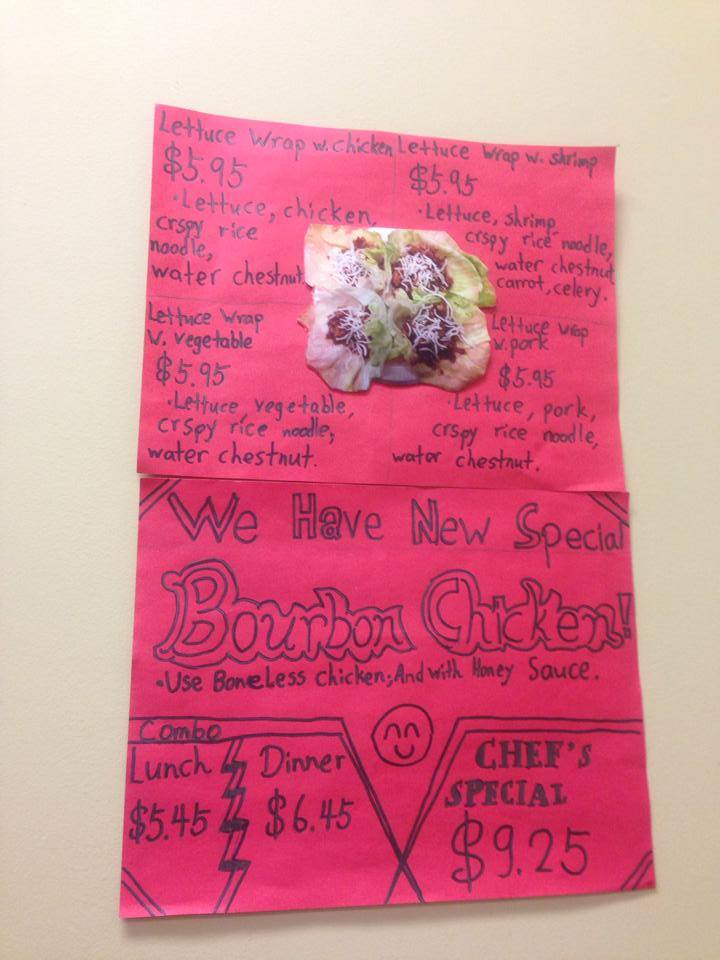 Lettuce Wrap w. chicken
$5.95
·Lettuce, chicken,
crspy rice
noodle,
water chestnut
Lettuce Wrap w. shrimp
$5.95
·Lettuce, shrimp
crspy rice noodle,
water chestnut
carrot, celery.
Lettuce Wrap
W. vegetable
$5.95
·Lettuce, vegetable,
crspy rice noodle,
water chestnut.
Lettuce Wrap
w. pork
$5.95
·Lettuce, pork,
crspy rice noodle,
water chestnut.
We Have New Special
Bourbon Chicken!
·Use BoneLess chicken; And with Honey Sauce.
Combo
Lunch
$5.45
Dinner
$6.45
CHEF'S
SPECIAL
$9.25